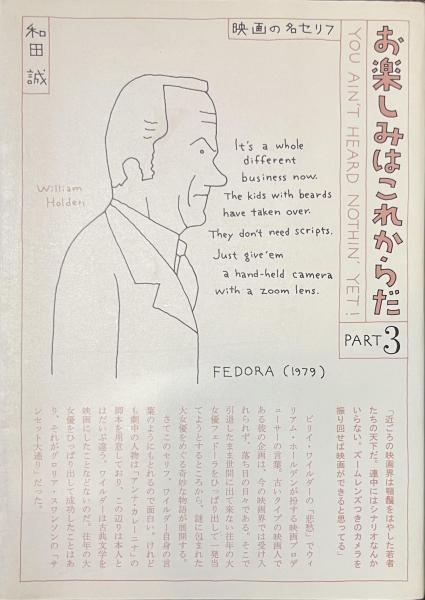 お楽しみはこれからだ
YOU AIN'T HEARD NOTHIN' YET!
PART3
映画の名セリフ
和田誠
William
Holden
It's a whole
different
business now.
The kids with beards
have taken over.
They don't need scripts.
Just give'em
a hand-held camera
with a zoom lens.
FEDORA (1979)
「近ごろの映画界は顎髭をはやした若者
たちの天下だ。連中にはシナリオなんか
いらない。ズームレンズつきのカメラを
振り回せば映画ができると思ってる」
ビリイ・ワイルダーの「悲愁」でウィ
リアム・ホールデンが扮する映画プロデ
ューサーの言葉。古いタイプの映画人で
ある彼の企画は、今の映画界では受け入
れられず、落ち目の日々である。そこで
引退したまま世間に出て来ない往年の大
女優フェドーラをひっぱり出して一発当
てようとするところから、謎に包まれた
大女優をめぐる奇妙な物語が展開する。
さてこのセリフ、ワイルダー自身の言
葉のようにもとれるので面白い。けれど
も劇中の人物は「アンナ・カレーニナ」の
脚本を用意しており、この辺りは本人と
はだいぶ違う。ワイルダーは古典文学を
映画にしたことなどないのだ。往年の大
女優をひっぱり出して成功したことはあ
り、それがグロリア・スワンソンの「サ
ンセット大通り」だった。